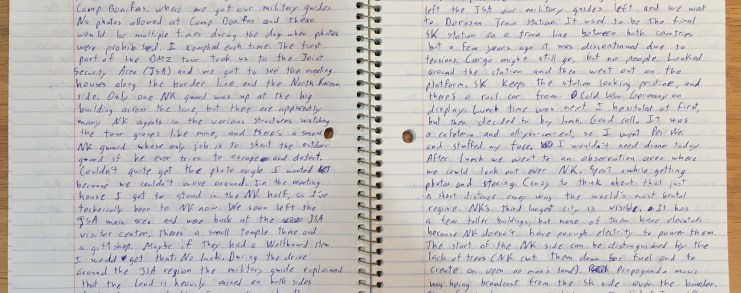 Camp Bonifas, where we got our military guides.
No photos allowed at Camp Bonifas and there
would be multiple times during the day when photos
were prohibited. I complied each time. The first
part of the DMZ tour took us to the Joint
Security Area (JSA) and we got to see the meeting
houses along the border line and the North Korean
side. Only one NK guard was up at the big
building across the line, but there are apparently
many NK agents in the various structures watching
the tour groups like mine, and there's a second
NK guard whose only job is to shoot the outdoor
guard if he ever tries to escape and defect.
Couldn't quite get the photo angle I wanted
because we couldn't move around. In the meeting
house I got to stand in the NK half, so I've
technically been to NK now. We soon left the
JSA main area and were back at the JSA
visitor center. There's a small temple there and
a giftshop. Maybe if they had a Wolfhound item
I would get that. No luck. During the drive
around the JSA region the military guide explained
that the land is heavily mined on both sides
left the JSA our military guides left and we went
to Dorasan Train station. It used to be the final
SK station on a train line between both countries
but a few years ago it was discontinued due to
tensions. Cargo might still go, but no people. Looked
around the station and then went out on the
platform. SK keeps the station looking pristine, and
there's a rail car from Cold War Germany on
display. Lunch time was next. I hesitated at first,
but then decided to buy lunch. Good call. It was
a cafeteria and all-you-can-eat, so I went Pei-Wei
and stuffed my face. I wouldn't need dinner today.
After lunch we went to an observation area where
we could look out over N.K. Spent awhile getting
photos and staring. Crazy to think about that just
a short distance away was the world's most brutal
regime. NK's third largest city is visible. It has
a few taller buildings, but none of them have elevators
because NK doesn't have enough electricity to power them.
The start of the NK side can be distinguished by the
lack of trees (NK cut them down for fuel and to
create an open no man's land). Propaganda music
was being broadcast from the SK side over the border.